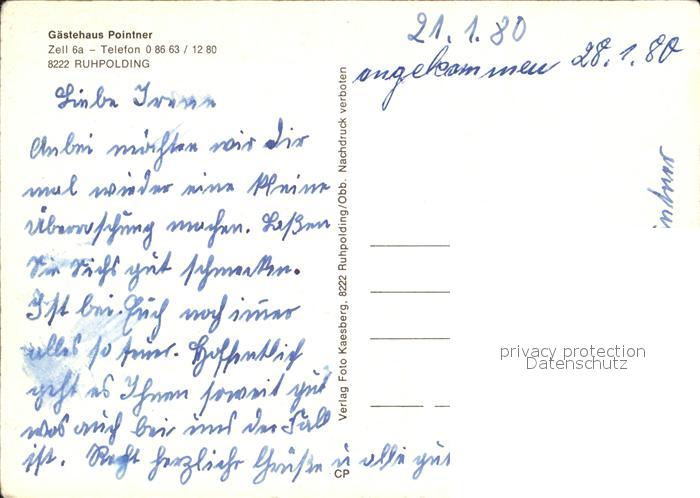 Gästehaus Pointner
Zell 6a – Telefon 0 86 63 / 12 80
8222 RUHPOLDING
21.1.80
angekommen 28.1.80
Liebe Irene
Anbei möchten wir dir
mal wieder eine kleine
Überraschung machen. Laßen
Sie Sichs gut schmecken.
Ist bei Euch noch immer
alles so teuer. Hoffentlich
geht es Ihnen soweit gut
was auch bei uns der Fall
ist. Recht herzliche Grüße u alle gut
Verlag Foto Kaesberg, 8222 Ruhpolding/Obb. Nachdruck verboten
CP
intner
privacy protection
Datenschutz